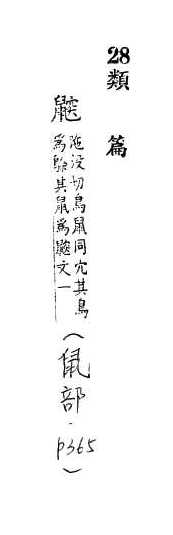 28 類 篇
鼵
陁没切鳥鼠同穴其鳥
爲鵌其鼠爲鼵文一
(鼠部·p365)